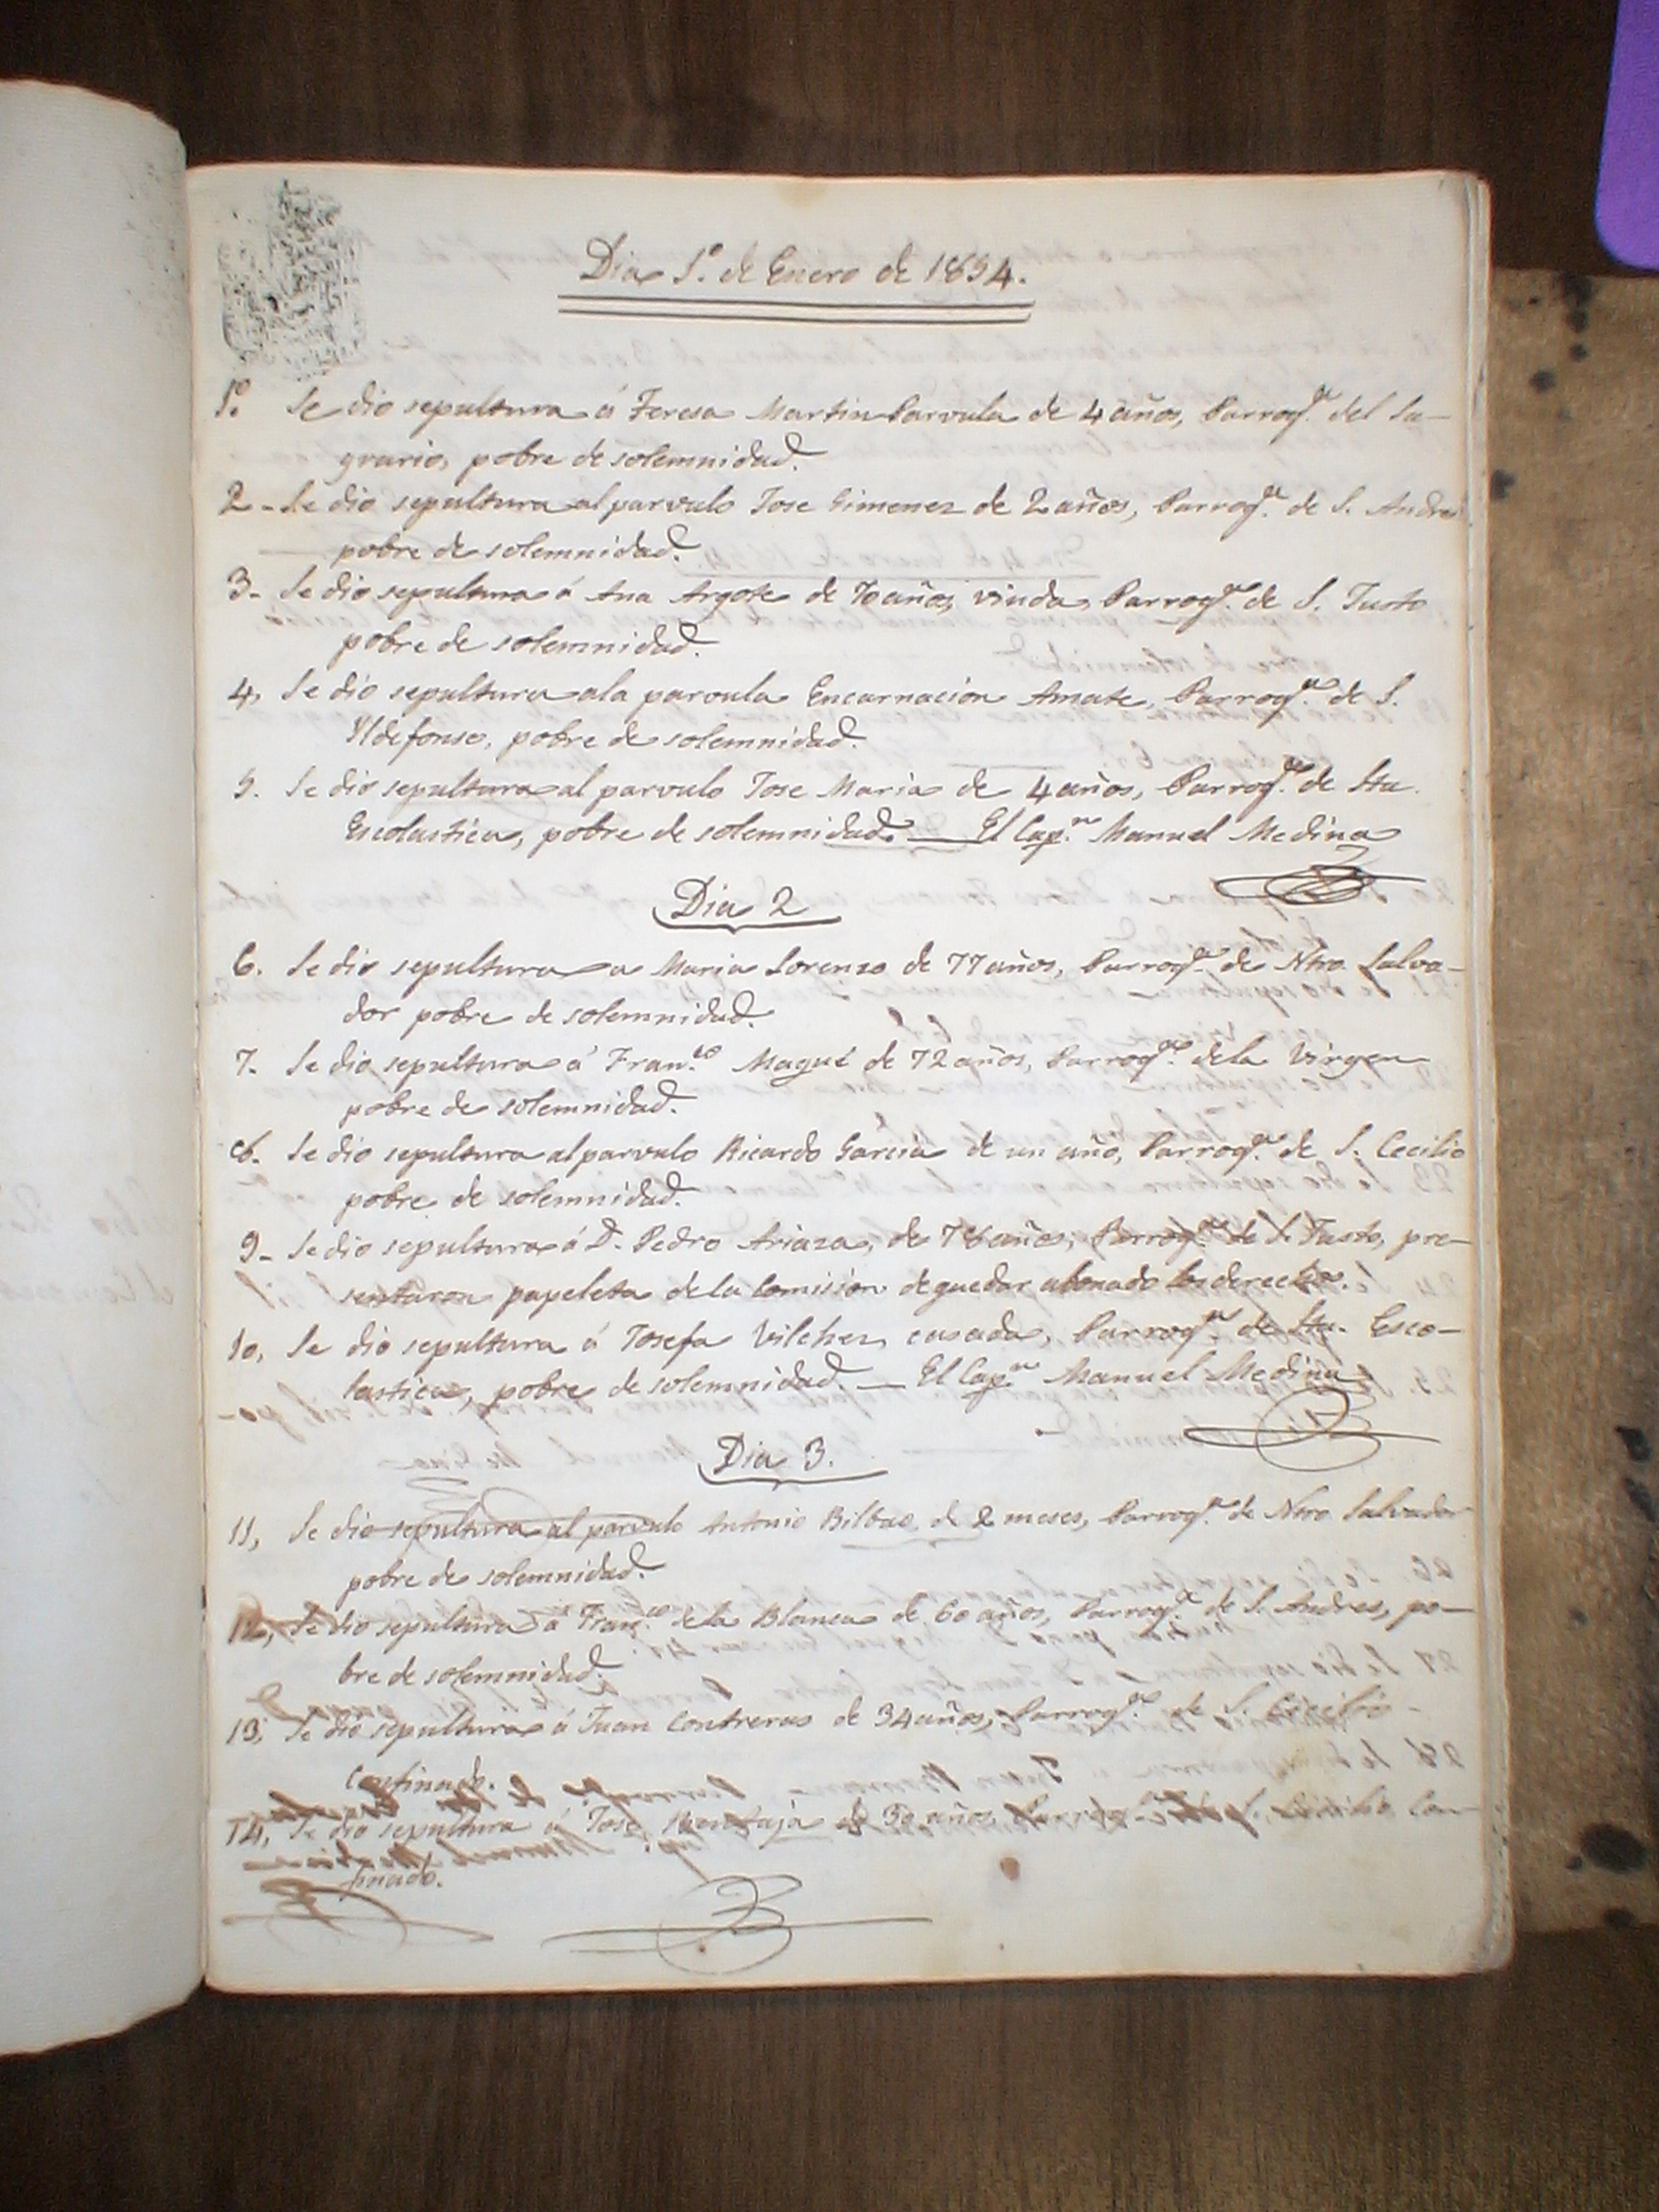 Dia 1º. de Enero de 1854.
1º. Se dio sepultura á Teresa Martin Parvula de 4 años, Parroqª. del Sa-
grario, pobre de solemnidad.
2 - Se dio sepultura al parvulo Jose Gimenez de 2 años, Parroqª. de S. Andres
pobre de solemnidad.
3 - Se dio sepultura á Ana Argote de 70 años, viuda, Parroqª. de S. Justo
pobre de solemnidad.
4, Se dio sepultura ala parvula Encarnacion Amate, Parroqª. de S.
Yldefonso, pobre de solemnidad.
5. Se dio sepultura al parvulo Jose Maria de 4 años, Parroqª. de Sta.
Escolastica, pobre de solemnidad. — El Capⁿ. Manuel Medina
Dia 2
6. Se dio sepultura a Maria Lorenzo de 77 años, Parroqª. de Ntro. Salva-
dor pobre de solemnidad.
7. Se dio sepultura á Franco. Magué de 72 años, Parroqª. dela Virgen
pobre de solemnidad.
8. Se dio sepultura al parvulo Ricardo Garcia de un año, Parroqª. de S. Cecilio
pobre de solemnidad.
9 - Se dio sepultura á D. Pedro Ariaza, de 78 años, Parroqª. de S. Justo, pre-
sentaron papeleta dela Comision de quedar abonado los derechos.
10, Se dio sepultura á Josefa Vilchez, casada, Parroqª. de Sta. Esco-
lastica, pobre de solemnidad. — El Capⁿ. Manuel Medina
Dia 3.
11, Se dio sepultura al parvulo Antonio Bilbao, de 2 meses, Parroqª. de Ntro. Salvador
pobre de solemnidad.
12, Se dio sepultura á Franco. dela Blanca de 60 años, Parroqª. de S. Andres, po-
bre de solemnidad.
13, Se dio sepultura á Juan Contreras de 34 años, Parroqª. de S. Cecilio -
Confinado.
14, Se dio sepultura á Jose de 30 años, Parroqª. de S. Cecilio, Con-
finado.